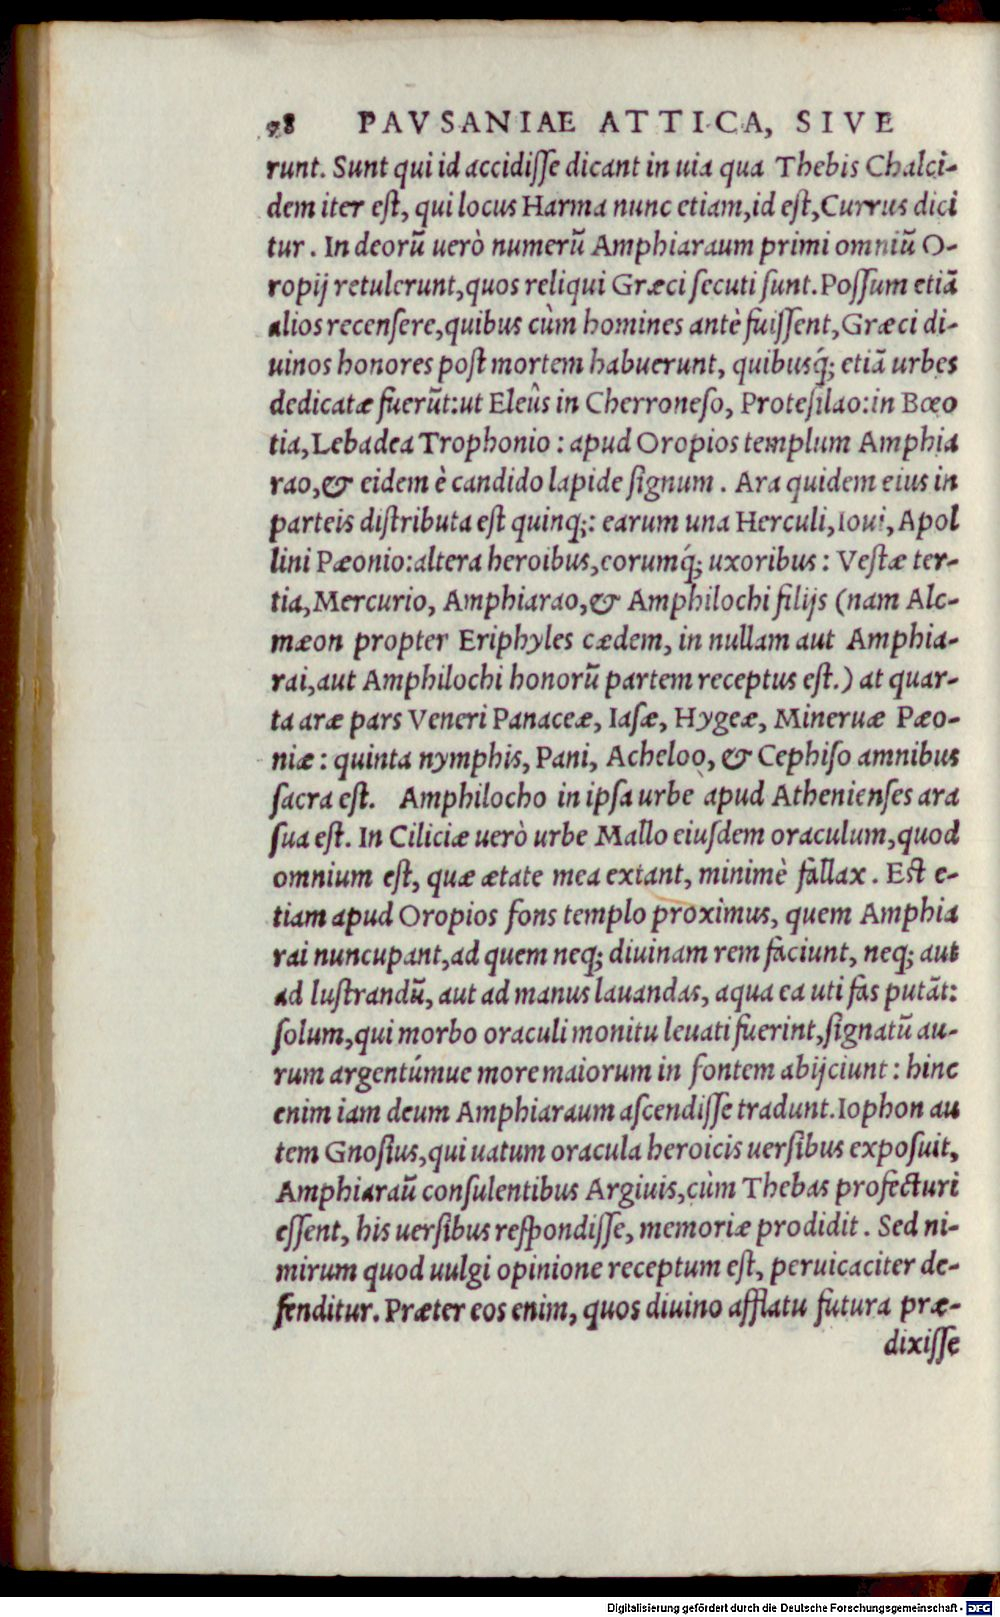 98 PAVSANIAE ATTICA, SIVE
runt. Sunt qui id accidiſſe dicant in uia qua Thebis Chalci-
dem iter eſt, qui locus Harma nunc etiam, id eſt, Currus dici
tur. In deorũ uerò numerũ Amphiaraum primi omniũ O-
ropij retulerunt, quos reliqui Græci ſecuti ſunt. Poſſum etiã
alios recenſere, quibus cùm homines antè fuiſſent, Græci di-
uinos honores poſt mortem habuerunt, quibusq́; etiã urbes
dedicatæ fuerũt: ut Eleûs in Cherroneſo, Proteſilao: in Bœo
tia, Lebadea Trophonio: apud Oropios templum Amphia
rao, & eidem è candido lapide ſignum. Ara quidem eius in
parteis diſtributa eſt quinq;: earum una Herculi, Ioui, Apol
lini Pæonio: altera heroibus, eorumq́; uxoribus: Veſtæ ter-
tia, Mercurio, Amphiarao, & Amphilochi filijs (nam Alc-
mæon propter Eriphyles cædem, in nullam aut Amphia-
rai, aut Amphilochi honorũ partem receptus eſt.) at quar-
ta aræ pars Veneri Panaceæ, Iaſæ, Hygeæ, Mineruæ Pæo-
niæ: quinta nymphis, Pani, Acheloo, & Cephiſo amnibus
ſacra eſt. Amphilocho in ipſa urbe apud Athenienſes ara
ſua eſt. In Ciliciæ uerò urbe Mallo eiuſdem oraculum, quod
omnium eſt, quæ ætate mea extant, minimè fallax. Eſt e-
tiam apud Oropios fons templo proximus, quem Amphia
rai nuncupant, ad quem neq; diuinam rem faciunt, neq; aut
ad luſtrandũ, aut ad manus lauandas, aqua ea uti fas putãt:
ſolum, qui morbo oraculi monitu leuati fuerint, ſignatũ au-
rum argentúmue more maiorum in fontem abijciunt: hinc
enim iam deum Amphiaraum aſcendiſſe tradunt. Iophon au
tem Gnoſius, qui uatum oracula heroicis uerſibus expoſuit,
Amphiaraũ conſulentibus Argiuis, cùm Thebas profecturi
eſſent, his uerſibus reſpondiſſe, memoriæ prodidit. Sed ni-
mirum quod uulgi opinione receptum eſt, peruicaciter de-
fenditur. Præter eos enim, quos diuino afflatu futura præ-
dixiſſe
Digitalisierung gefördert durch die Deutsche Forschungsgemeinschaft - DFG